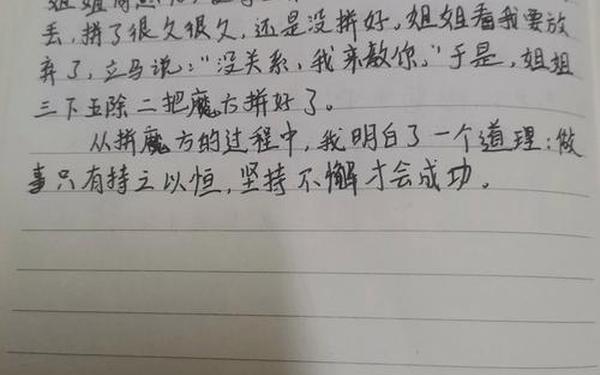 姐姐
丢，拼了很久很久，还是没拼好，姐姐看我要放
弃了，立马说：“没关系，我来教你。”于是，姐姐
三下五除二把魔方拼好了。
从拼魔方的过程中，我明白了一个道理：做
事只有持之以恒，坚持不懈才会成功。